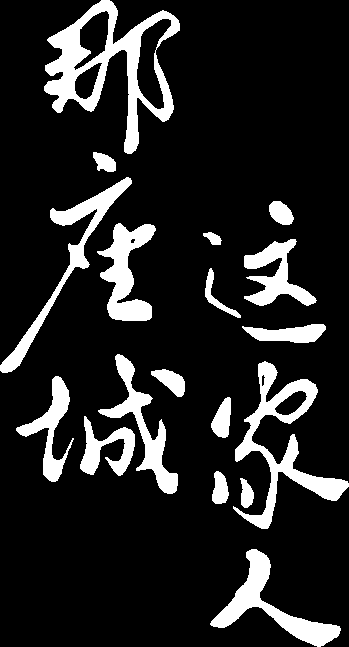 那座城
这家人